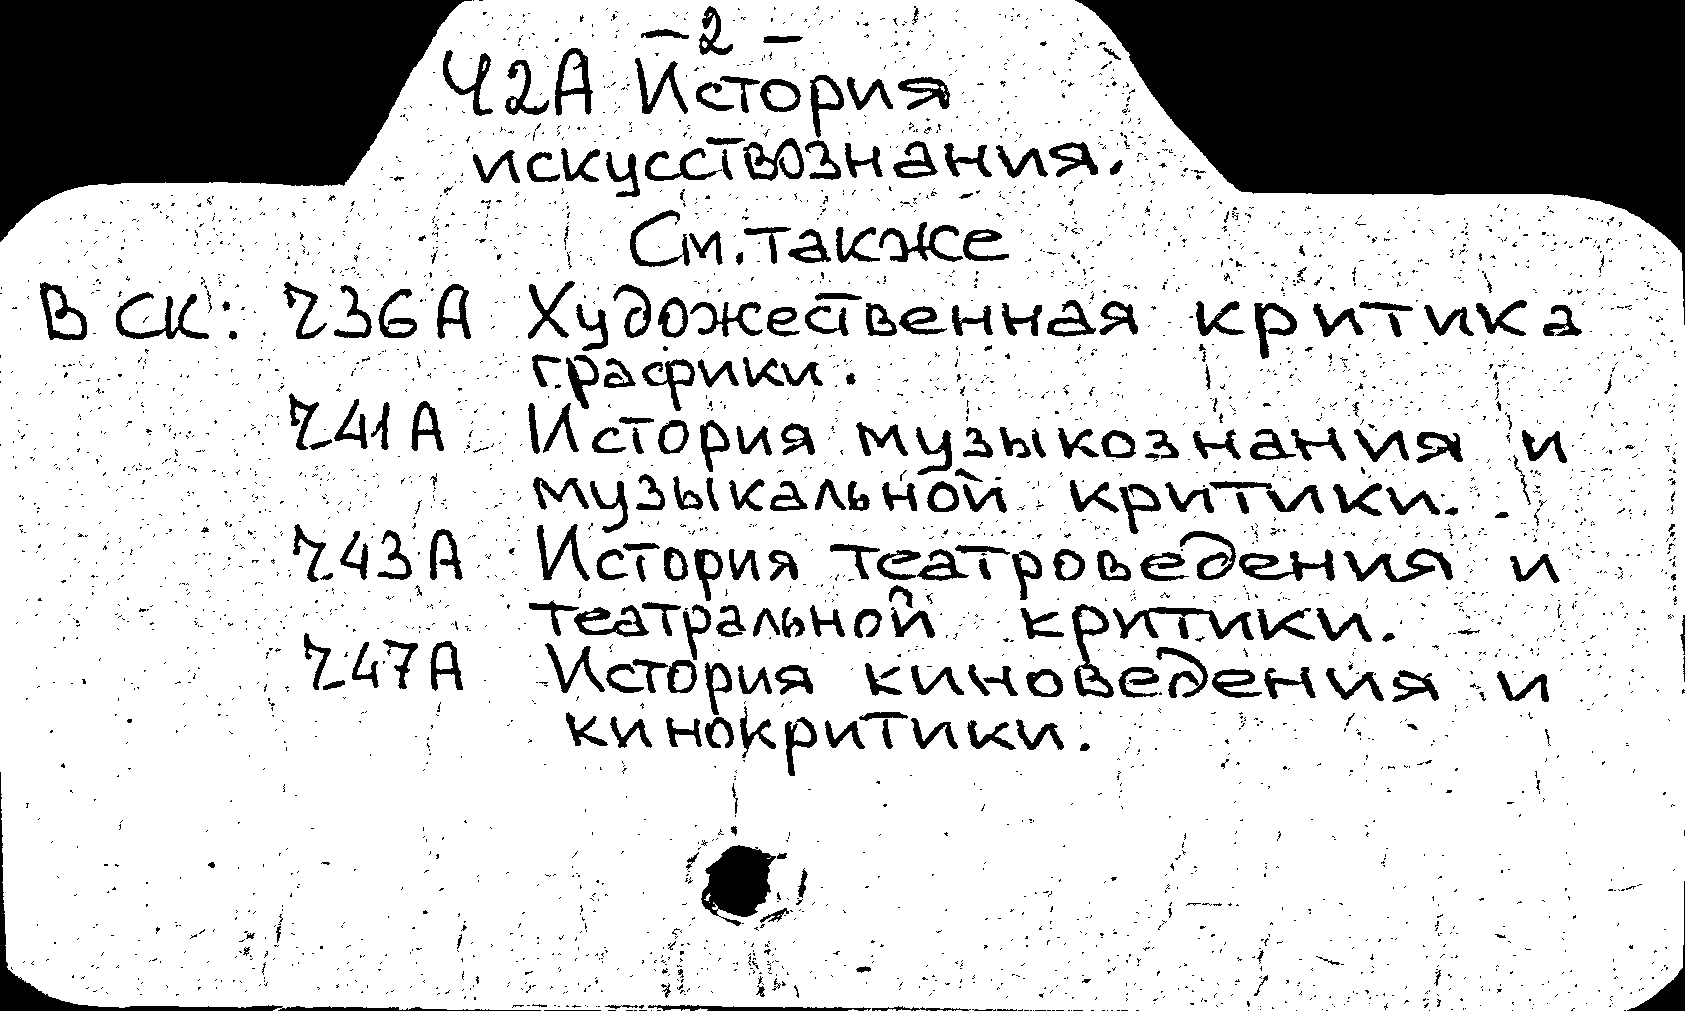 – 2 –
Ч2А История
искусствознания.
См. также
В СК: Z36А Художественная критика
графики.
Z41А История музыкознания и
музыкальной критики.
Z43А История театроведения и
театральной критики.
Z47А История киноведения и
кинокритики.